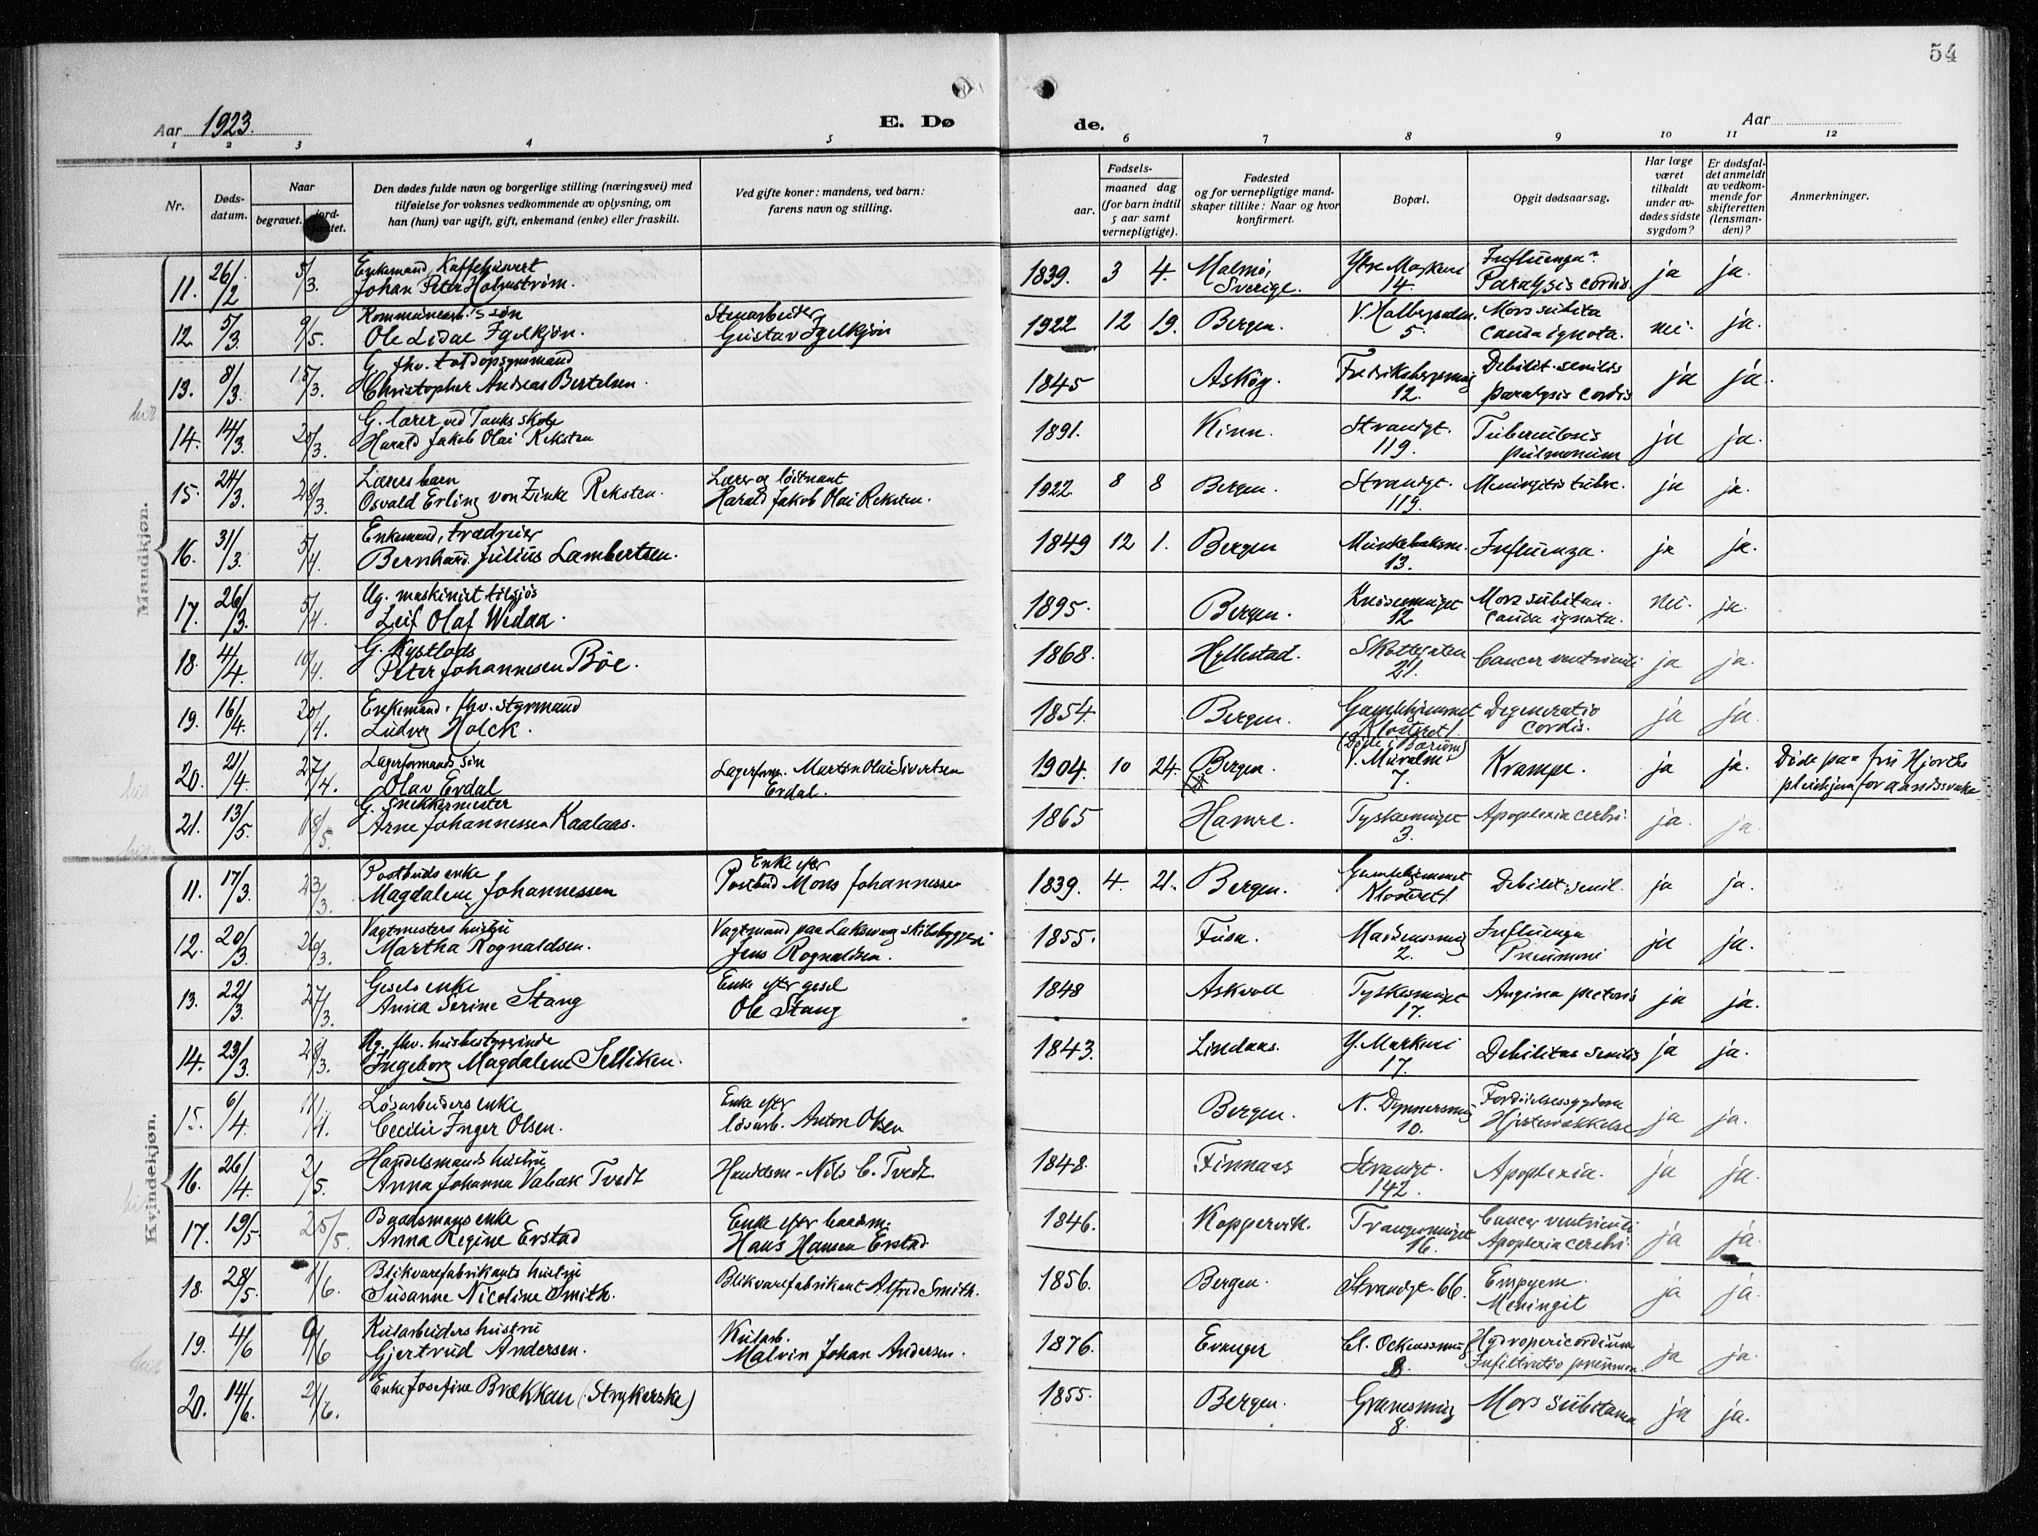 54
Aar 1923.
E. Dø
de.
Aar
1 2 3 4 5 6 7 8 9 10 11 12
Nr.
Døds-
datum.
Naar
begravet.
jord-
fæstet.
Den dødes fulde navn og borgerlige stilling (næringsvei) med
tilføielse for voksnes vedkommende av oplysning, om
han (hun) var ugift, gift, enkemand (enke) eller fraskilt.
Ved gifte koner: mandens, ved barn:
farens navn og stilling.
Fødsels-
aar.
maaned dag
(for barn indtil
5 aar samt
vernepligtige).
Fødested
og for vernepligtige mand-
skaper tillike: Naar og hvor
konfirmert.
Bopæl.
Opgit dødsaarsag.
Har læge
været
tilkaldt
under av-
dødes sidste
sygdom?
Er dødsfal-
det anmeldt
av vedkom-
mende for
skifteretten
(lensman-
den)?
Anmerkninger.
Mandkjøn.
11. 26/2 5/3. Enkemand, Kaffehusvert
Johan Peter Holmstrøm. 1839. 3 4. Malmø, Sverige. Ytre Markvei 14. Influenza Paralysis cordis ja ja.
12. 5/3. 9/5. Kommunearb.'s søn
Ole Lidal Igelkjøn. Stenarbeider Gustav Igelkjøn 1922 12 19. Bergen. V. Holbergsalm. 5 Mors subita causa ignota. nei. ja.
13. 8/3. 15/3. G. fhv. toldopsynsmand
Christopher Andreas Bertelsen. 1845 Askøy. Fredriksbergsmug 12. Debilit. senilis paralysis cordis ja ja.
14. 14/3. 20/3. G. lærer ved Tanks skole
Harald Jakob Olai Reksten 1891. Kinn. Strandgt. 119. Tuberculosis pulmonum ja ja.
15. 24/3. 28/3. Læreres barn
Osvald Erling von Zinke Reksten. Lærer og løitnant Harald Jakob Olai Reksten. 1922 8 8 Bergen. Strandgt. 119. Meningitis tuberc. ja ja.
16. 31/3. 5/4. Enkemand, trædreier
Bernhard Julius Lambertsen. 1849 12 1. Bergen Munkebeksm. 13. Influenza. ja ja.
17. 26/3. 5/4. Ug. maskinist tilsjøs
Leif Olaf Widaa. 1895. Bergen. Knøsesmuget 12 Mors subitan. causa ignota. nei. ja.
18. 4/4. 10/4. G. Kystlods
Peter Johannesen Böe. 1868. Hyllestad. Skottegaten 21. Cancer ventriculi ja ja.
19. 16/4. 20/4. Enkemand, fhv. styrmand
Ludvig Holck. 1854. Bergen. Gamlehjemmet Klosteret 1. Degeneratio cordis. ja ja.
20. 21/4. 27/4. Lagerformands søn
Olav Erdal Lagerform. Martin Olai Sivertsen Erdal. 1904. 10 24. Bergen. (Døde i Bærum) V. Muralm. 7. Krampe. ja ja. Døde paa fru Hjorths
pleiehjem for aandssvake
21. 13/5. 18/5. G. Snekkermester
Arne Johannessen Kaalaas. 1865 Hamre. Tyskesmuget 3. Apoplexia cerebri. ja. ja.
Kvindekjøn.
11. 17/3. 23/3. Postbuds enke
Magdalene Johannessen Enke efter Postbud Mons Johannessen 1839. 4. 21. Bergen. Gamlehjemmet Klosteret 1. Debilit. senil. ja ja.
12. 20/3. 26/3. Vagtmesters hustru
Martha Rognaldsen. Vagtmand paa Laksevaag skibsbyggeri Jens Rognaldsen. 1855. Fusa. 2. Influenza Pneumoni ja ja.
13. 22/3. 27/3. Gesels enke
Anna Serine Stang Enke efter gesel Ole Stang 1848 Askvoll Tyskesmuget 17. Angina pectoris ja ja.
14. 23/3. 28/3. Ug. fhv. husbestyrerinde
Ingeborg Magdalene Selliken. 1843. Lindaas. Y. Markvei 17. Debilitas senilis ja ja.
15. 6/4. 11/4. Løsarbeiders enke
Cecilie Inger Olsen. Enke efter løsarb. Anton Olsen Bergen. N. Dynnersmug 10. Fordøielsessygdom Hjertesvækkelse ja ja.
16. 26/4. 2/5. Handelsmands hustru
Anna Johanna Tvedt Handelsm. Nils C. Tvedt. 1848. Finnaas Strandgt. 142. Apoplexia. ja ja.
17. 19/5 25/5. Baadsmands enke
Anna Regine Erstad Enke efter baadsm. Hans Hansen Erstad 1846. Koppervik. Trangesmuget 16. Cancer ventriculi Apoplexia cerebri. ja ja.
18. 28/5. 1/6. Blikvarefabrikants hustru
Susanne Nicoline Smith. Blikvarefabrikant Alfred Smith. 1856. Bergen. Strandgt. 66. Empyem. Meningit ja ja.
19. 4/6 9/6 Kularbeiders hustru
Gjertrud Andersen. Kularb. Malvin Johan Andersen. 1876. Evanger Cl. Ockenssmug 8. Hydropericordium Infiltratio pneumon. ja ja.
20. 14/6. 21/6. Enke Josefine Brækkan (Strykerske) 1855. Bergen. Granesmug 8. Mors subitanea ja ja.